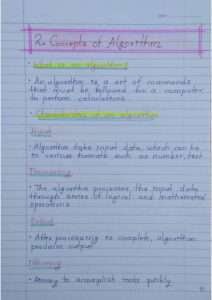 2. Concepts of Algorithms
• What is an algorithm?
• An algorithm is a set of commands
that must be followed for a computer
to perform calculations.
• Characteristics of an algorithm
Input
• Algorithm take input data, which can be
in various formats such as number, text
Processing
• The algorithm processes the input data
through series of logical and mathematical
operations
Output
• After processing is complete, algorithm
produces output
Efficiency
• accomplish tasks quickly